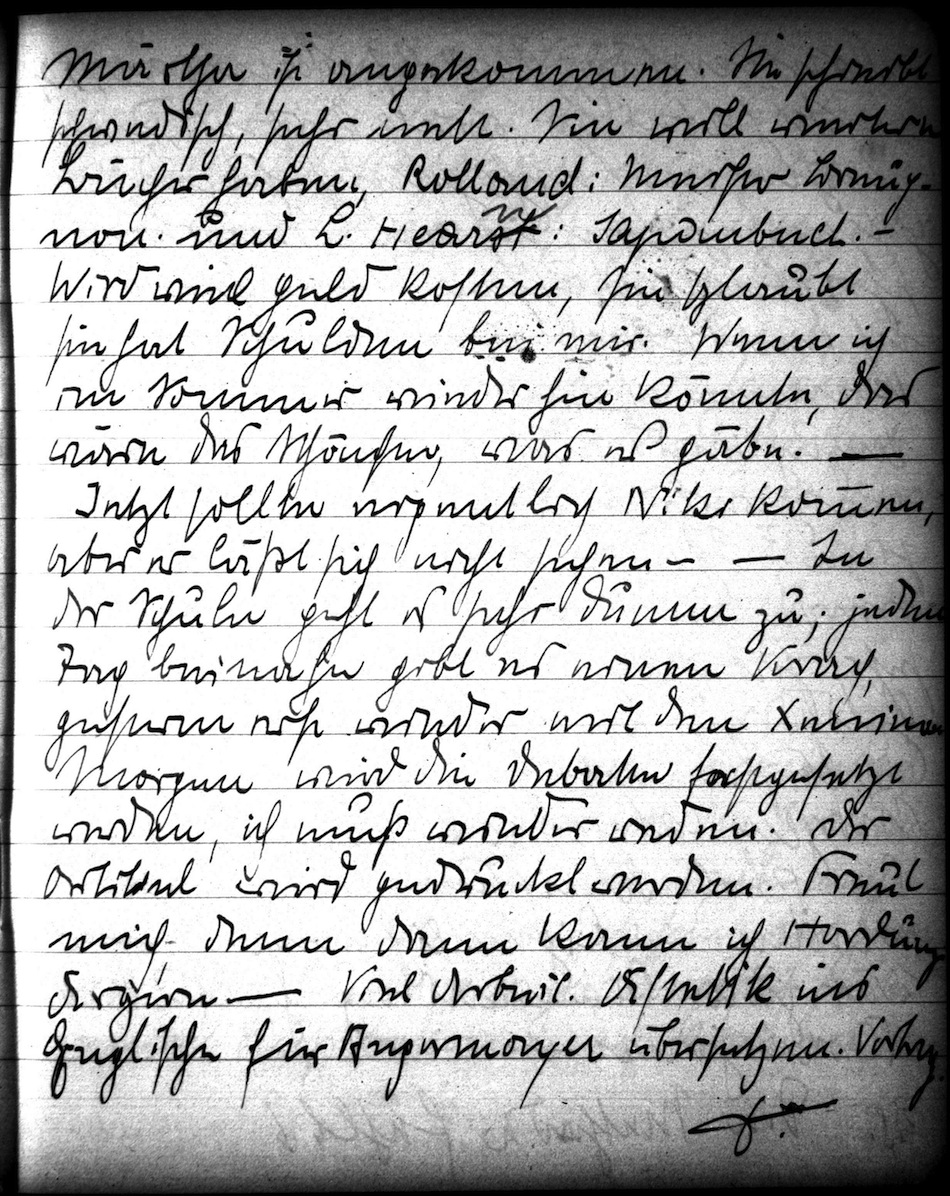 Märtha ist angekommen. Sie schreibt
schwedisch, sehr nett. Sie will weitere
Bücher haben, Rolland: Meister Breug-
non. und L. Hearn: Japanbuch. –
Wird viel Geld kosten, sie glaubt
sie hat Schulden bei mir. Wenn ich
im Sommer wieder hin könnte, das
wäre das Schönste, was es gäbe. —
Jetzt sollte eigentlich Niks kommen,
aber er läßt sich nicht sehen – — In
der Schule geht es sehr dumm zu; jeden
Tag beinahe gibt es einen Krach,
gestern erst wieder mit dem
Morgen wird die Debatte fortgesetzt
werden, ich muß wieder reden. Der
Artikel wird gedruckt werden. Freut
mich denn dann kann ich
— Viel Arbeit. Ästhetik ins
Englische für Angermayer übersetzen. Vortrag.